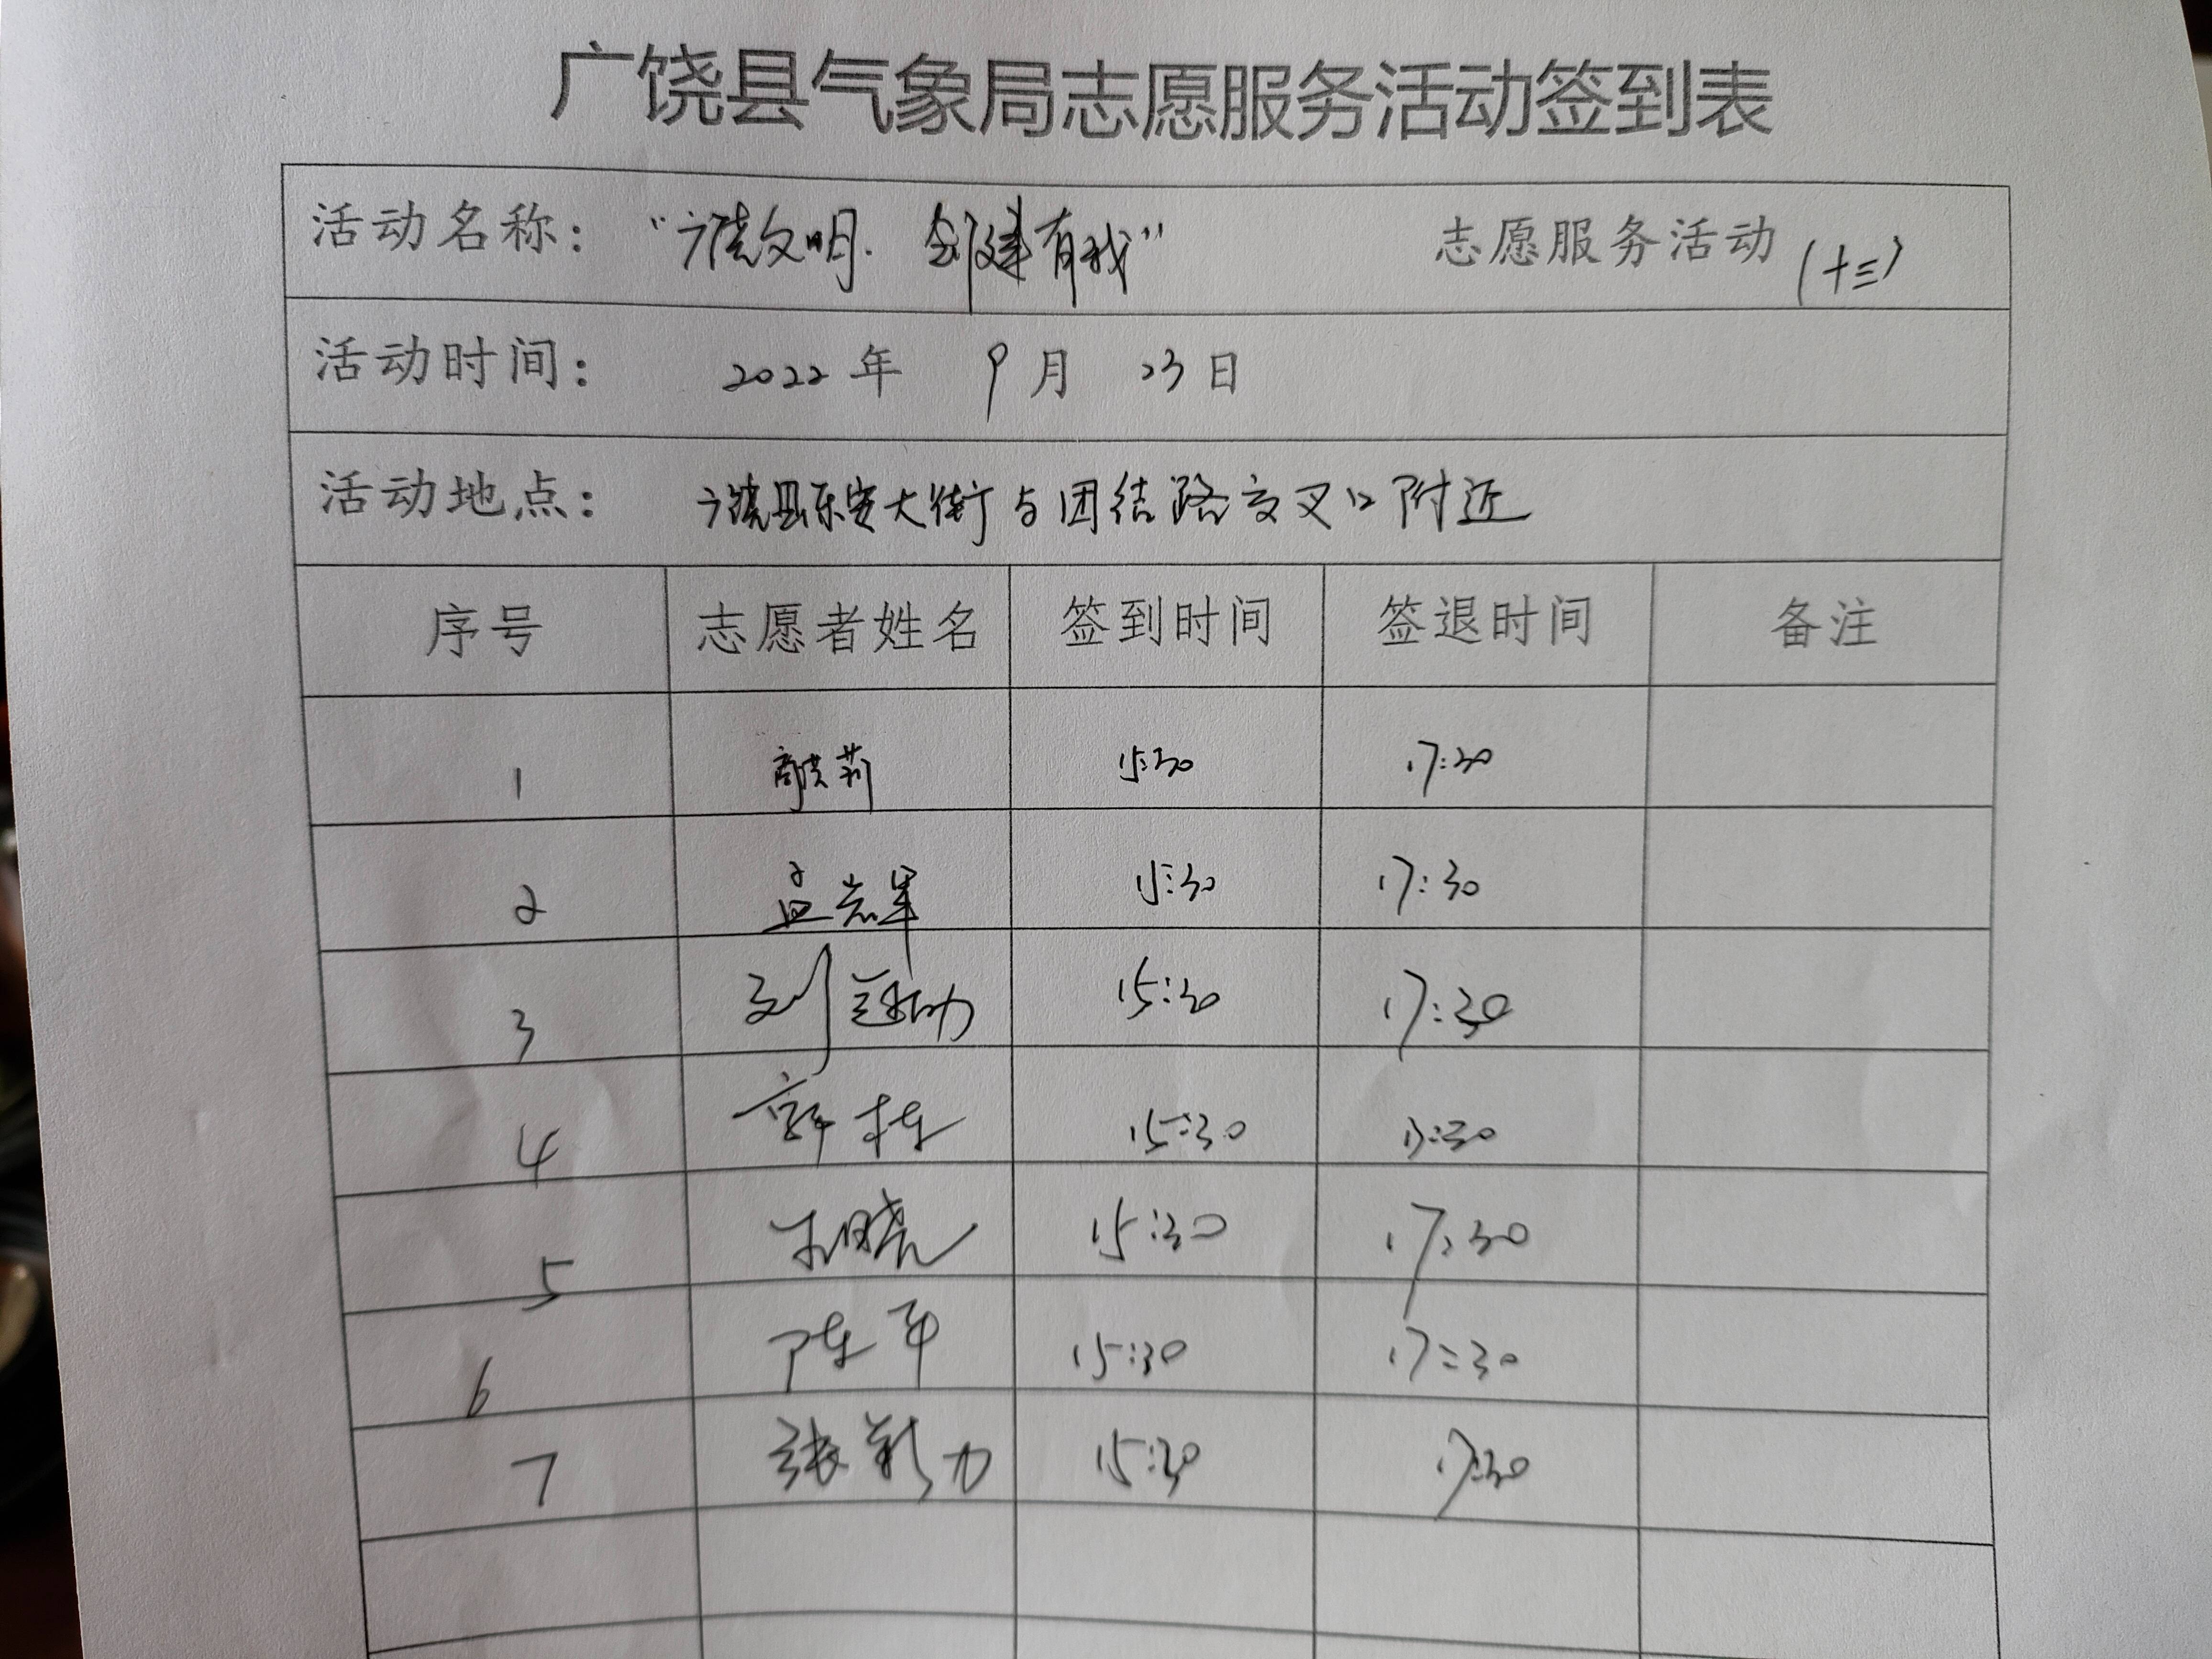 广饶县气象局志愿服务活动签到表
活动名称：“广饶文明·创建有我” 志愿服务活动（十三）
活动时间： 2022年 9月 23日
活动地点： 广饶县乐安大街与团结路交叉口附近
序号 志愿者姓名 签到时间 签退时间 备注
1 15:30 17:30
2 孟岩军 15:30 17:30
3 刘冠 15:30 17:30
4 15:30 17:30
5 晓 15:30 17:30
6 陈平 15:30 17:30
7 张新力 15:30 17:30